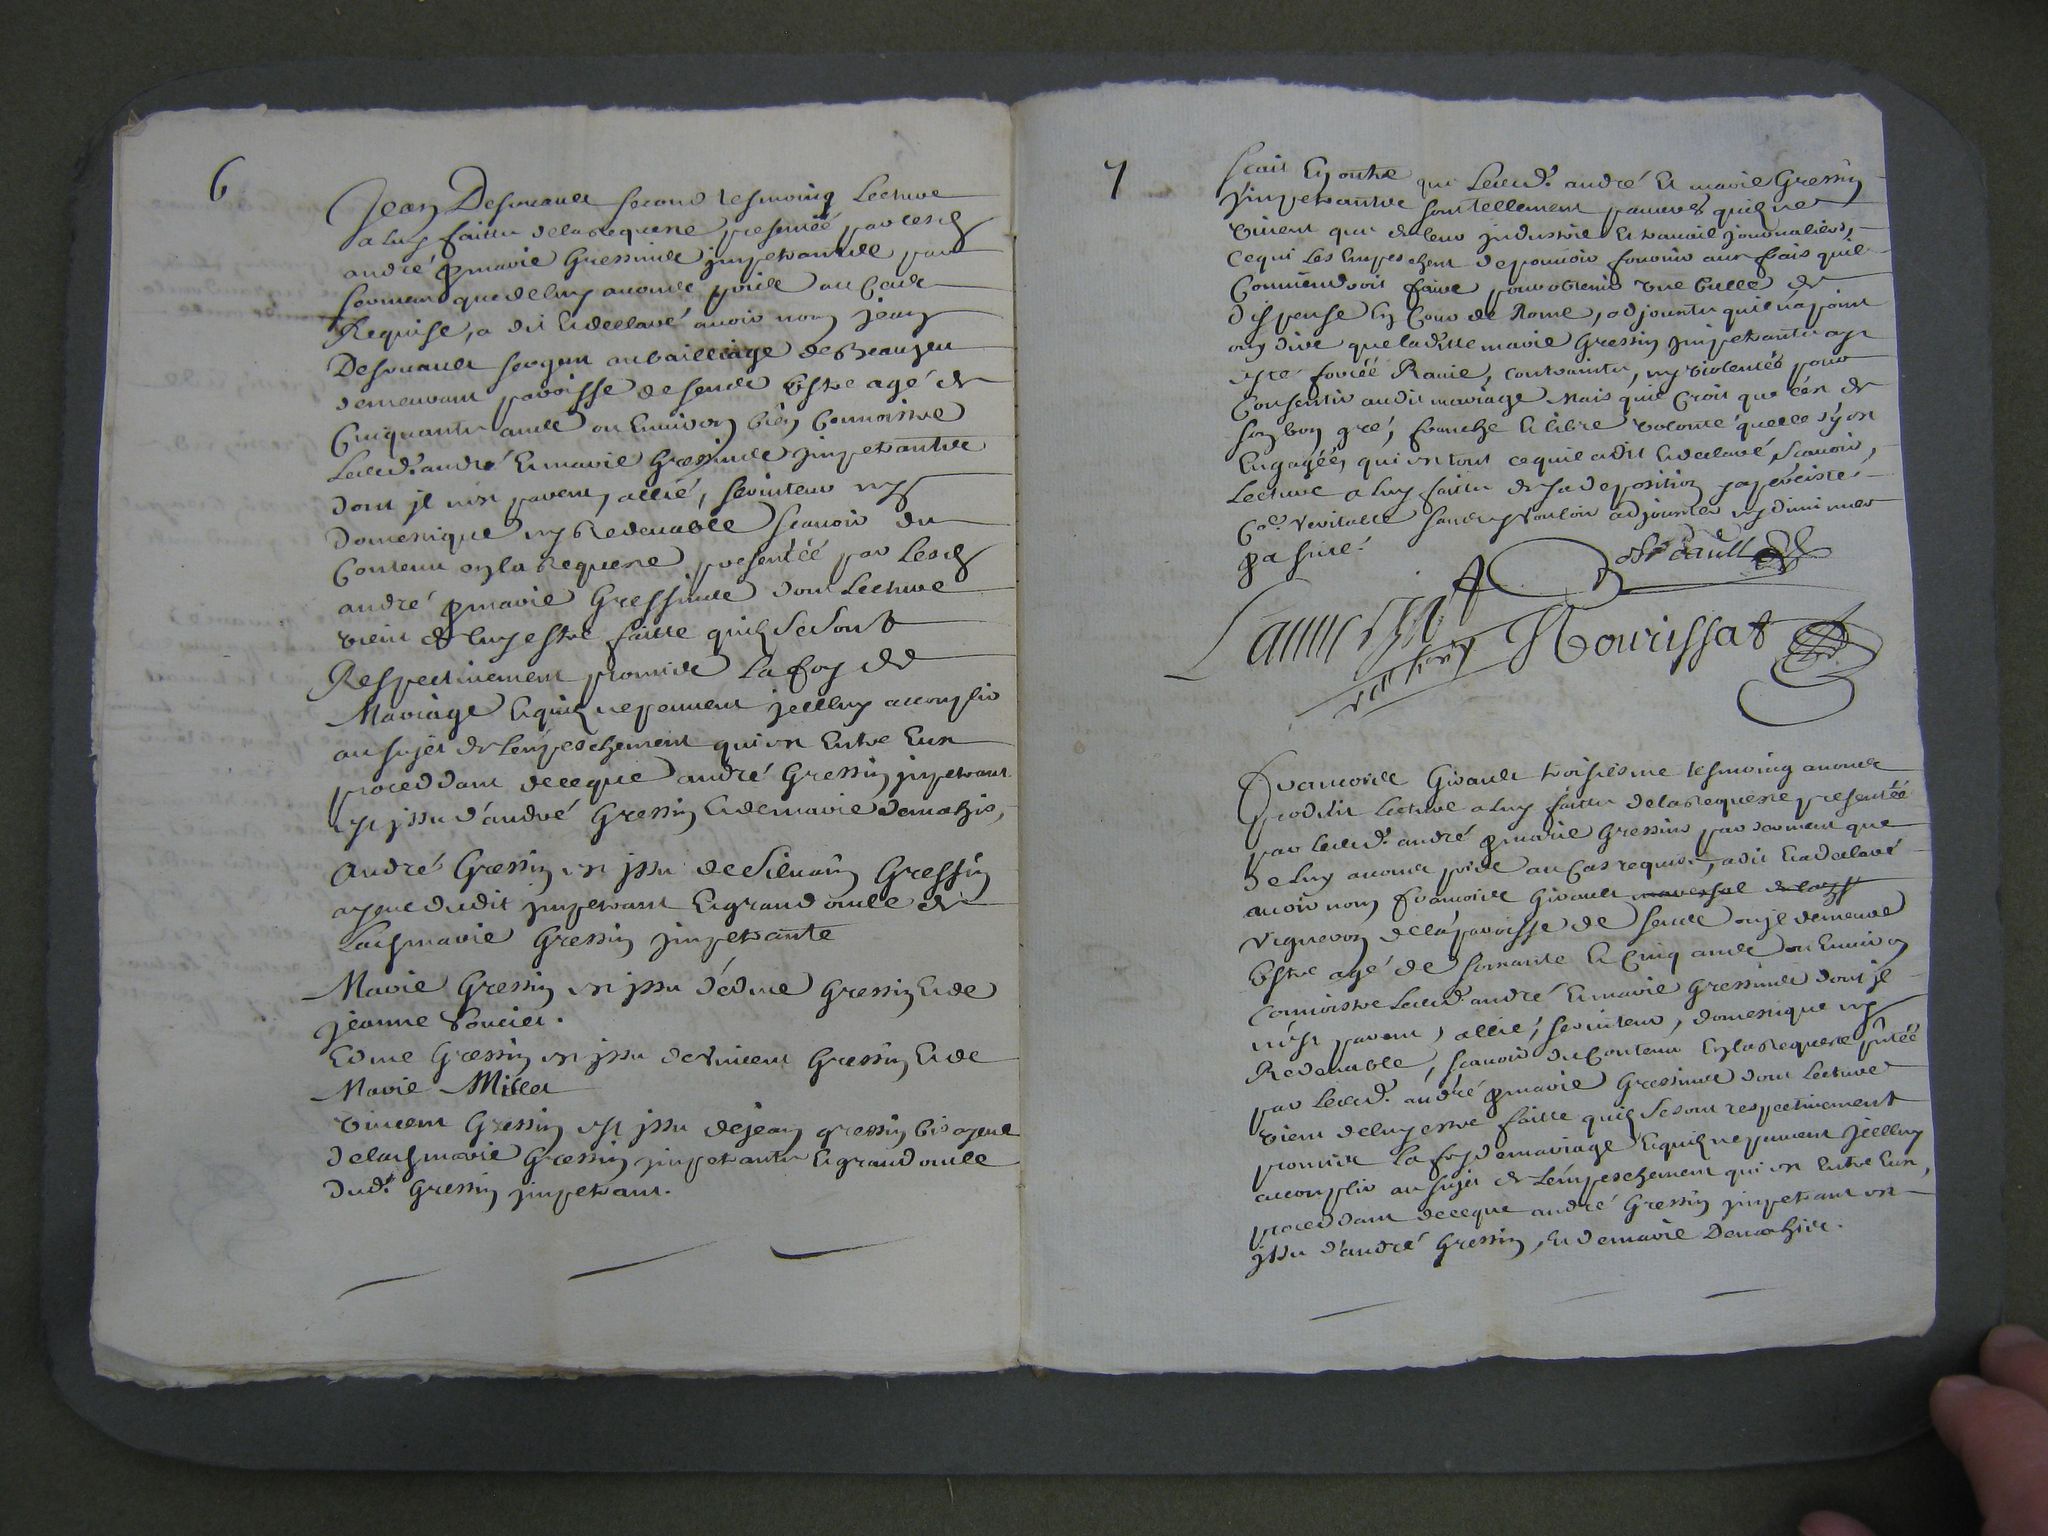 6
Jean second tesmoing Lecture
a luy faitte de la requeste presentée par lesd
andré & marie Gressin impetrants par
serment que de luy auons pris au Cas
Requise, a dit Et declaré auoir nom jean
sergent au bailliage de
demeurant paroisse de Sens Estre agé de
Cinquante ans ou Enuiron bien Connoistre
Lesd. andré Et marie Gressin impetrants
dont jl n'est parent, allié, seruiteur ny
domestique ny Redeuable scauoir du
Contenu en la Requeste presentée par Lesd
andré & marie Gressin dont Lecture
vient de luy estre faitte quilz se sont
Respectiuement promis La foy de
Mariage Et quilz ne peuuent jcelluy accomplir
au sujet de l'empeschement qui est Entre Eux
procedant de ce que andré Gressin jmpetrant
est jssu d'andré Gressin Et de marie demathis,
André Gressin est jssu de Siluain Gressin
ayeul dudit jmpetrant Et grand oncle de
Lad marie Gressin jmpetrante
Marie Gressin est jssu d'edme Gressin Et de
jeanne
Edme Gressin est jssu de Vincent Gressin Et de
Marie Millet
Vincent Gressin est jssu de jean gressin bisayeul
de lad marie Gressin jmpetrante Et grand oncle
dud. Gressin jmpetrant.
7
scait En outre que Lesd. andré Et marie Gressin
jmpetrants sont tellement pauures quilz ne
viuent que de leur jndustrie Et trauail journaliers,
ce qui Les Empeschent de pouuoir fournir aux frais quil
Conuiendroit faire pour obtenir vne bulle de
dispense En Cour de Rome, adjoute quil n'a point
ouy dire que laditte marie Gressin jmpetrante aye
esté forcée Rauie, contrainte, ny violentée pour
Consentir audit mariage Mais quil Croit que c'est de
son bon gré, franche Et libre volonté quelle s'y est
Engagée, qui est tout ce quil a dit Et declaré scauoir,
Lecture a luy faitte de sa deposition y a persisté
Co. Veritable sans y vouloir adjouster ny diminuer
& a signé.
Nourissat
francois Girault troisiesme tesmoing auons
produit Lecture a luy faitte de la requeste presentée
par lesd. andré & marie Gressin par serment que
de luy auons pris au Cas requis, a dit Et a declaré
auoir nom francois Girault
vigneron de la paroisse de Sens ou jl demeure
Estre agé de soixante Et Cinq ans ou Enuiron
connoistre Lesd. andré Et marie Gressin dont jl
n'est parent, allié, seruiteur, domestique ny
Redeuable, scauoir du Contenu En la Requeste pntée
par lesd. andré & marie Gressin dont Lecture
vient de luy estre faitte quilz se sont respectiuement
promis La foy de mariage Et quilz ne peuuent jcelluy
accomplir au sujet de L'empeschement qui est Entre Eux,
procedant de ce que andré Gressin jmpetrant est
jssu d'andré Gressin, Et de marie Demathis.